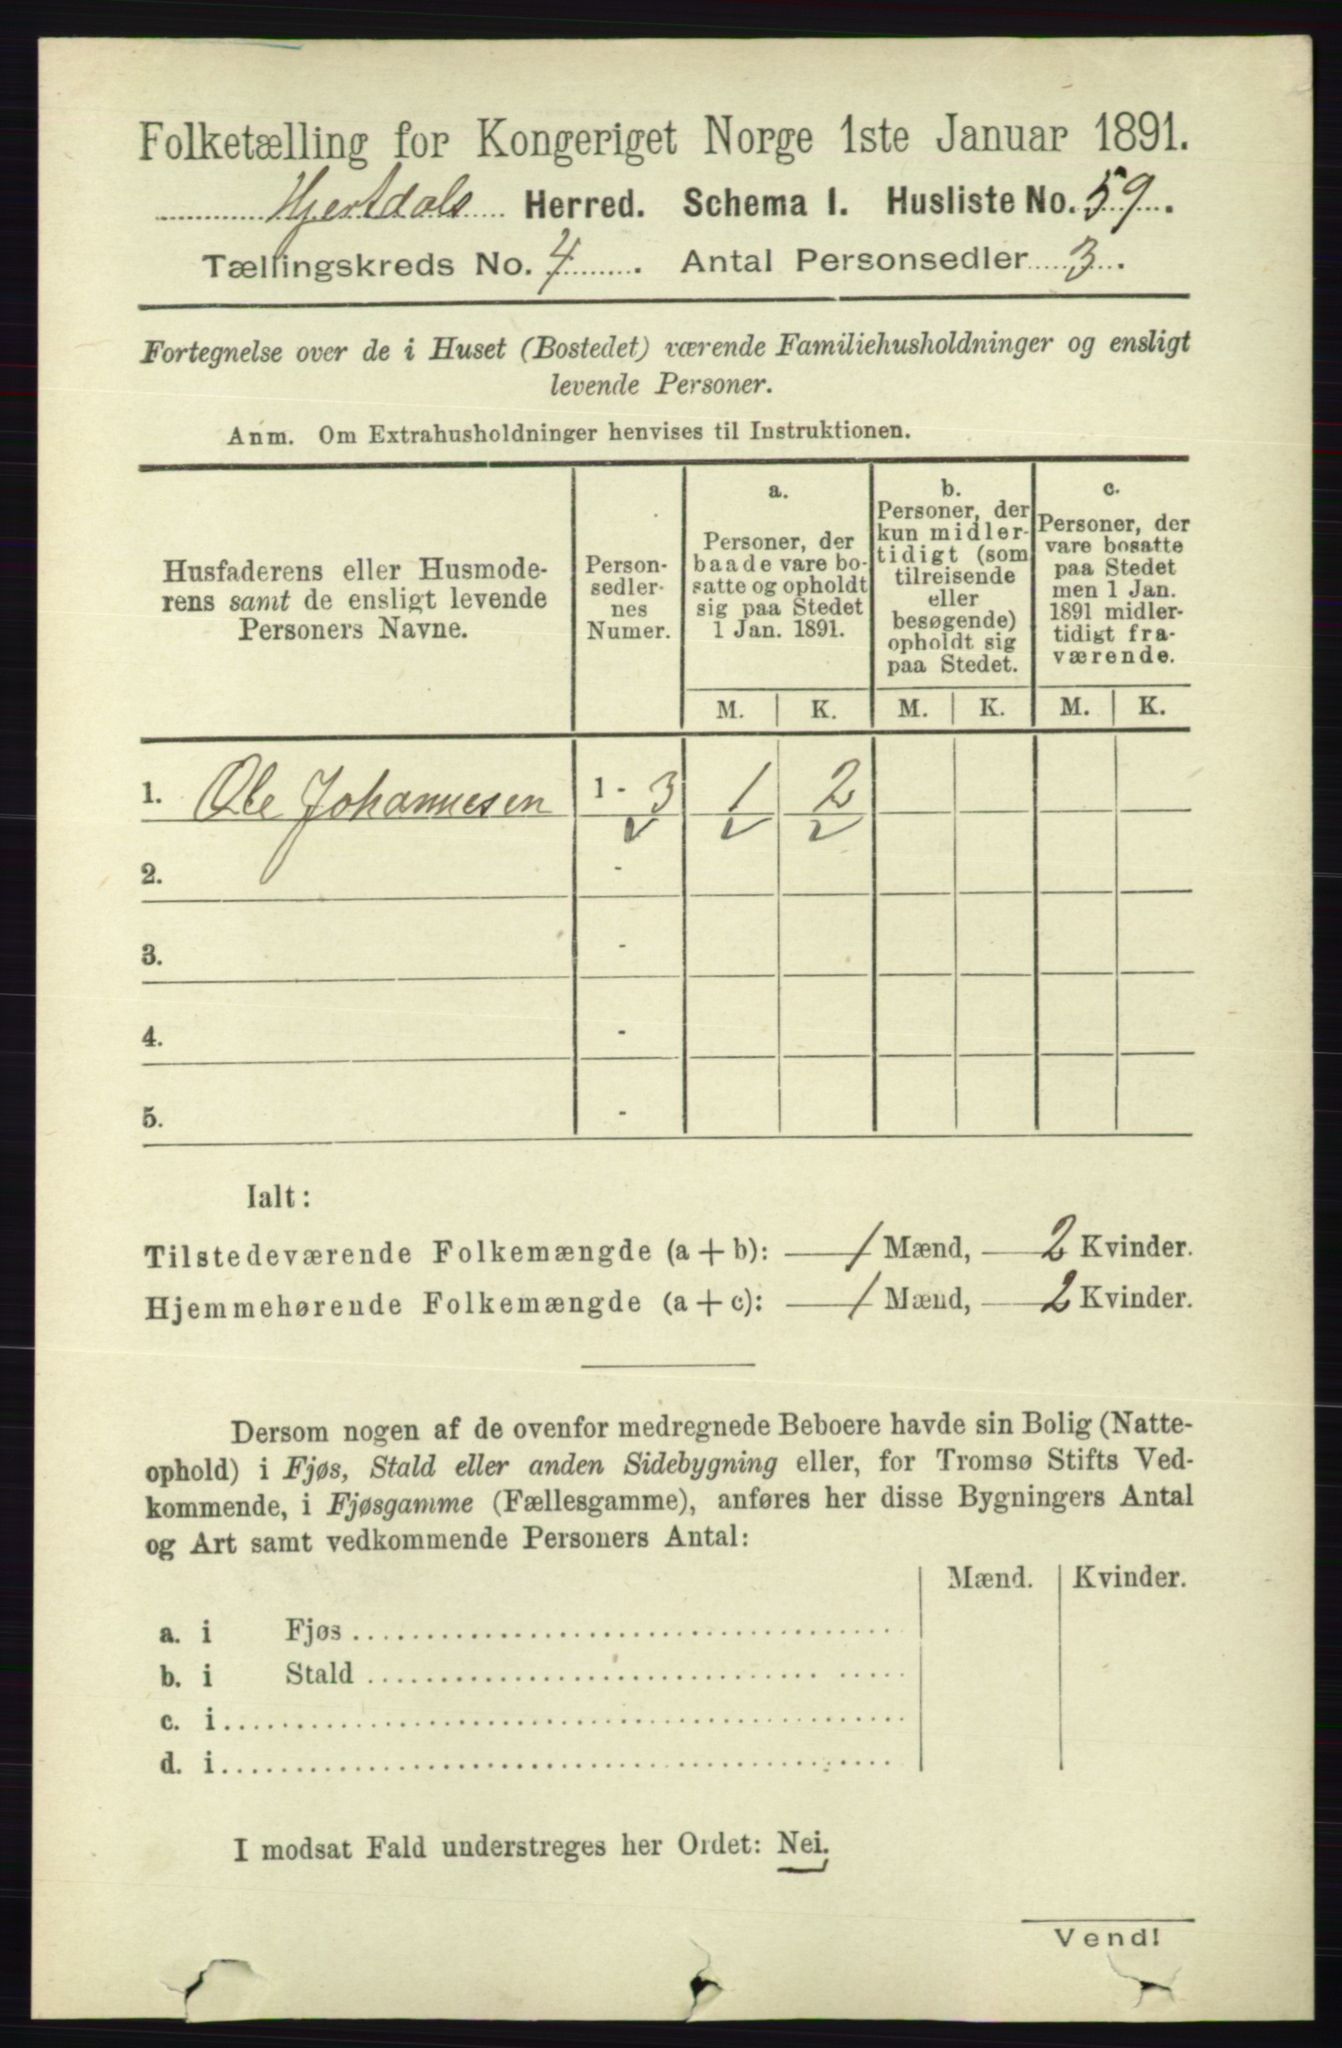 Folketælling for Kongeriget Norge 1ste Januar 1891.
Hjertdals Herred. Schema I. Husliste No. 59.
Tællingskreds No. 4. Antal Personsedler 3.
Fortegnelse over de i Huset (Bostedet) værende Familiehusholdninger og ensligt
levende Personer.
Anm. Om Extrahusholdninger henvises til Instruktionen.
Husfaderens eller Husmode-
rens samt de ensligt levende
Personers Navne.
Person-
sedler-
nes
Numer.
a.
Personer, der
baade vare bo-
satte og opholdt
sig paa Stedet
1 Jan. 1891.
b.
Personer, der
kun midler-
tidigt (som
tilreisende
eller
besøgende)
opholdt sig
paa Stedet.
c.
Personer, der
vare bosatte
paa Stedet
men 1 Jan.
1891 midler-
tidigt fra-
værende.
M. K. M. K. M. K.
1. Ole Johannesen 1 - 3 1 2
2. -
3. -
4. -
5. -
Ialt:
Tilstedeværende Folkemængde (a + b): 1 Mænd, 2 Kvinder.
Hjemmehørende Folkemængde (a + c): 1 Mænd, 2 Kvinder.
Dersom nogen af de ovenfor medregnede Beboere havde sin Bolig (Natte-
ophold) i Fjøs, Stald eller anden Sidebygning eller, for Tromsø Stifts Ved-
kommende, i Fjøsgamme (Fællesgamme), anføres her disse Bygningers Antal
og Art samt vedkommende Personers Antal:
Mænd. Kvinder.
a. i Fjøs
b. i Stald
c. i
d. i
I modsat Fald understreges her Ordet: Nei.
Vend!